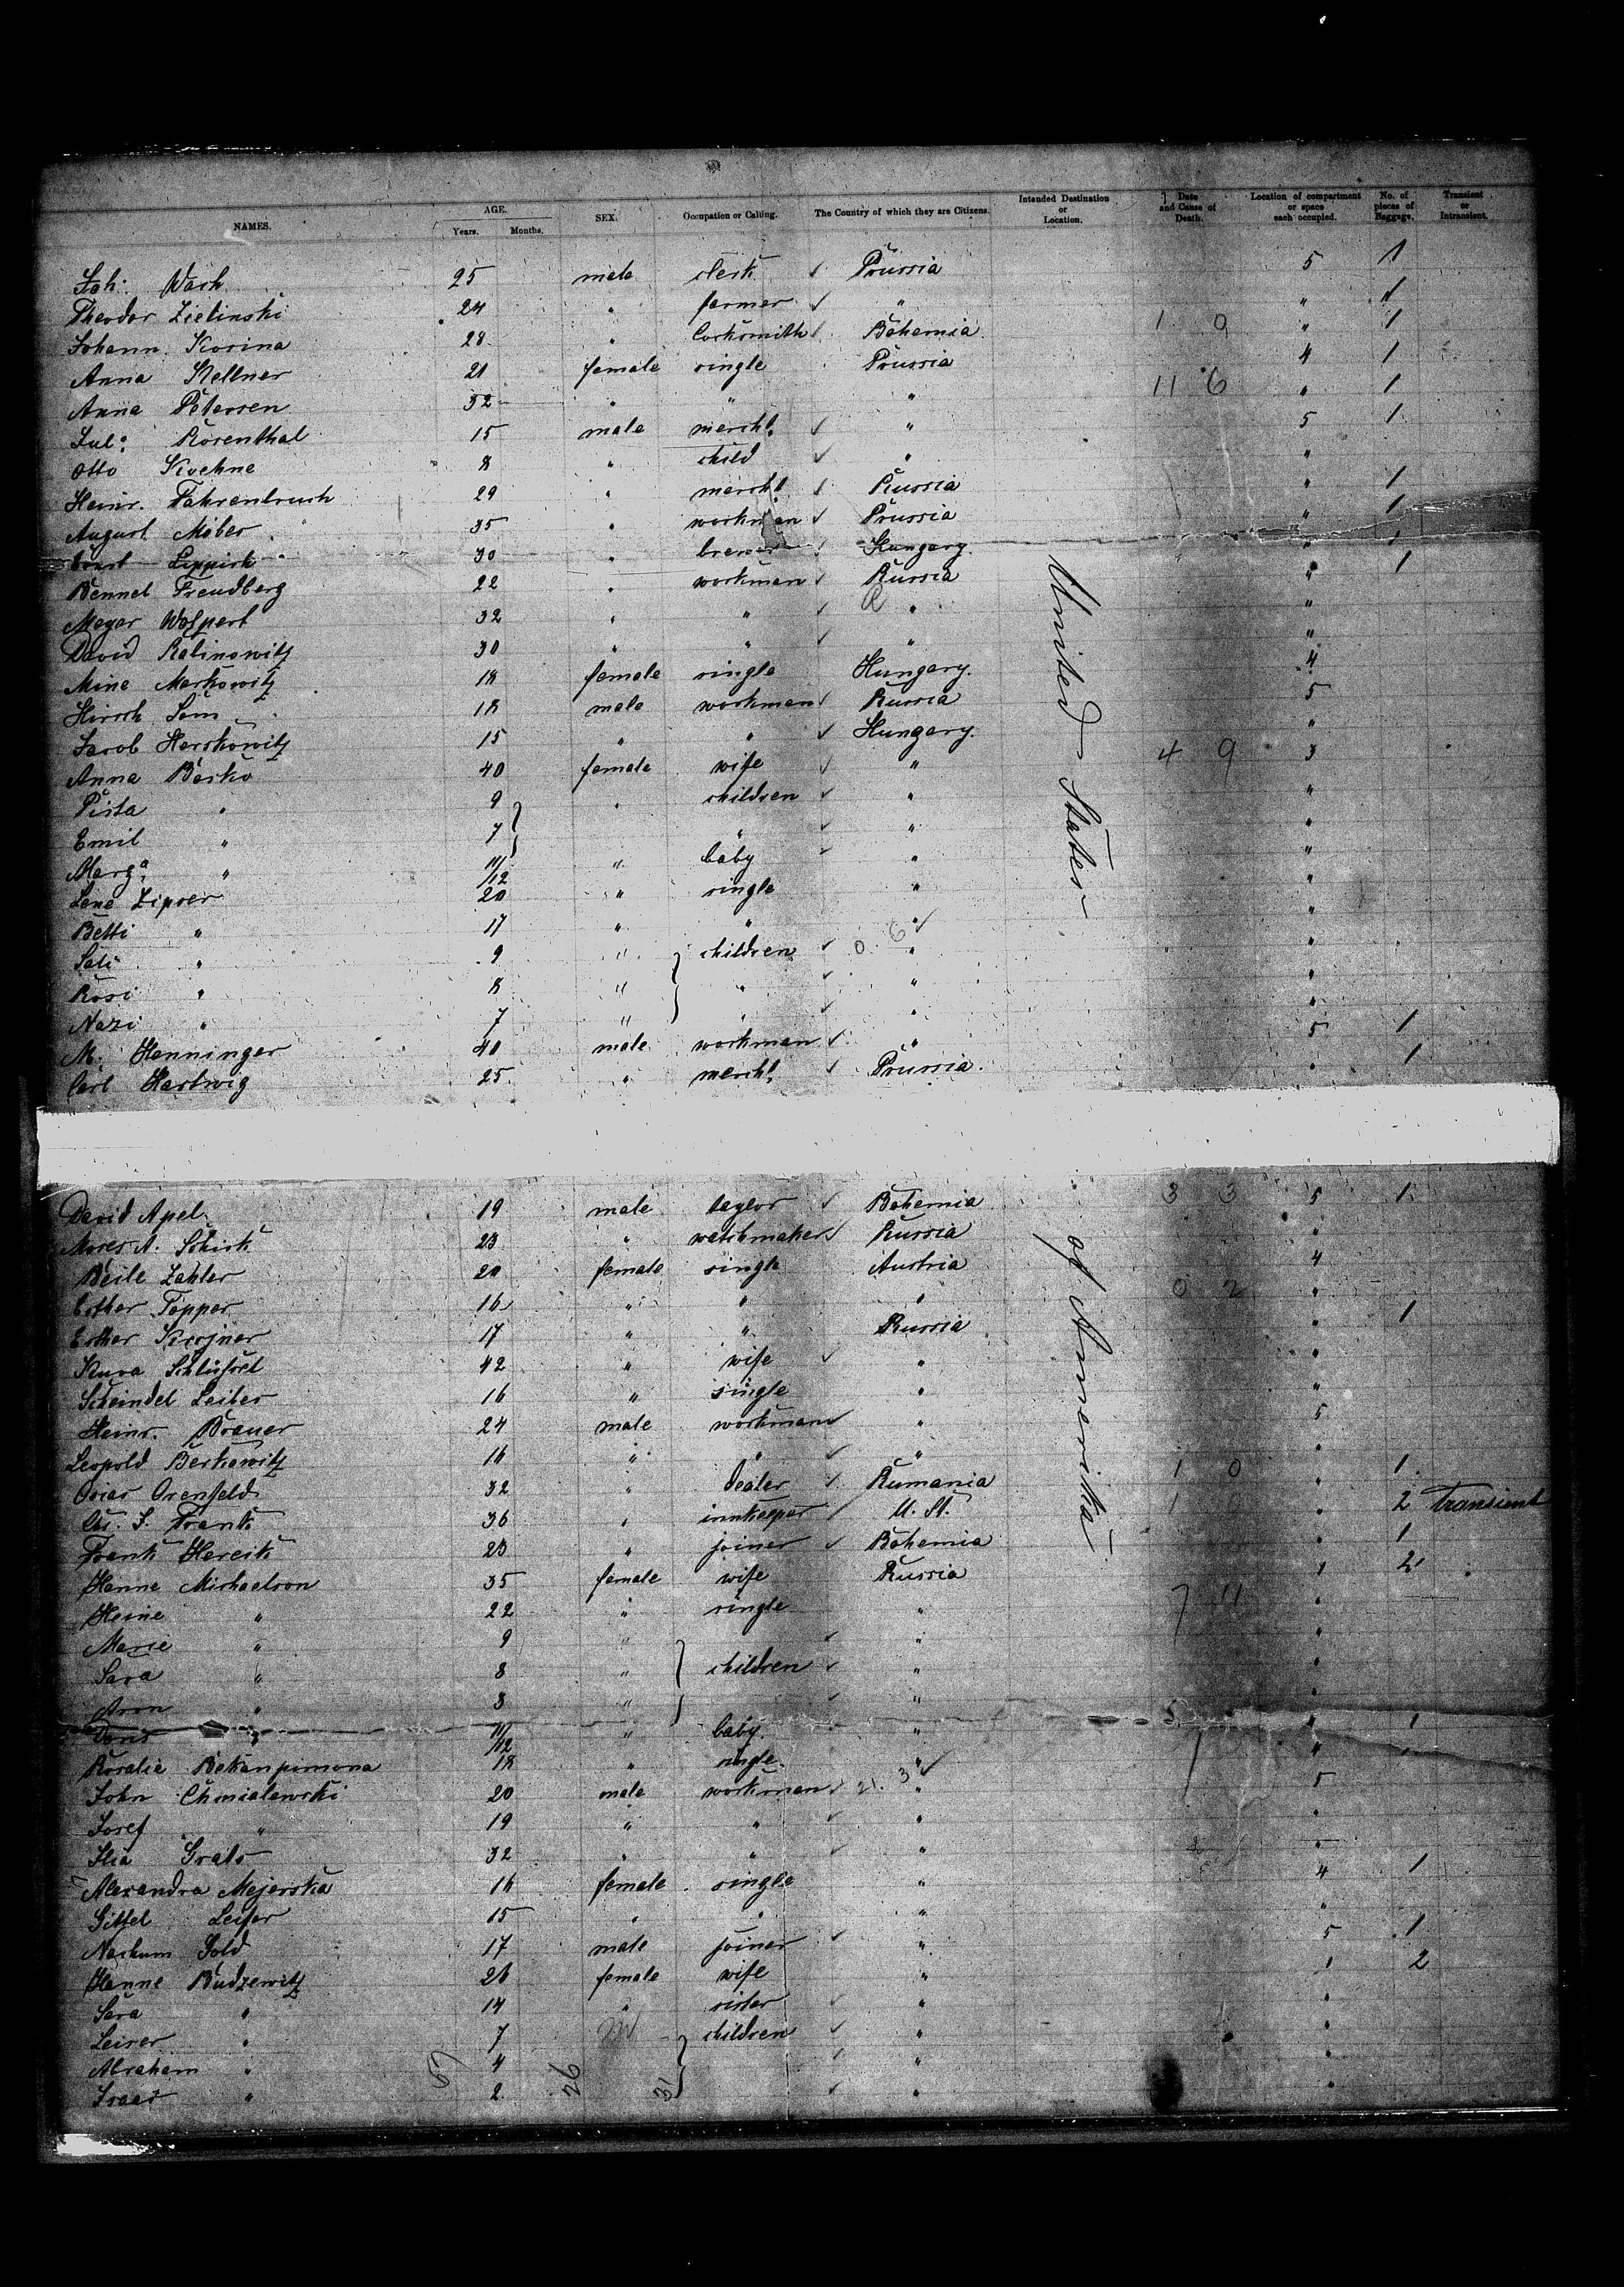 NAMES. AGE. Years. Months. SEX. Occupation or Calling. The Country of which they are Citizens. Intended Destination or Location. Date and Cause of Death. Location of compartment or space each occupied. No. of pieces of Baggage. Transient or Intransient.
Joh. Wach 25 male clerk ✓ Prussia 5 1
Theodor Zielinski 24 " farmer ✓ " " 1
Johann Kosina 28 " locksmith ✓ Bohemia 1 9 " 1
Anna Kellner 21 female single Prussia 4 1
Anna Petersen 32 " " " 11 6 " 1
Jul: Rosenthal 15 male mercht. ✓ " 5 1
Otto Kuehne 8 " child ✓ " "
Heinr. Fahrenbruch 29 " mercht. ✓ Russia " 1
August Möber 35 " workman ✓ Prussia " 1
Ernst Lippick 30 " brewer ✓ Hungary. " 1
Bennet Freudberg 22 " workman ✓ Russia " 1
Meyer Wolpert 32 " " ✓ R " "
David Kalinowitz 30 " " ✓ " "
Mine Markowitz 18 female single Hungary. 4
Hirsch Som 18 male workman ✓ Russia 5
Jacob Herskowitz 15 " " ✓ Hungary. "
Anna Berko 40 female wife ✓ " 4 9 3
Pista " 9 " children ✓ " "
Emil " 7 " ✓ " "
Marga. " 11/12 " baby ✓ " "
Lene Zipser 20 " single " "
Betti " 17 " " " ✓ "
Sali " 9 " children ✓ 0 6 " "
Rosi " 8 " " ✓ " "
Nazi " 7 " " ✓ " "
M. Henninger 40 male workman ✓ " 5 1
Carl Hartwig 25 " mercht. ✓ Prussia. " 1
United States
David Apel 19 male taylor ✓ Bohemia 3 3 5 1
Moses A. Schick 23 " watchmaker ✓ Russia "
Beile Zahler 20 female single Austria 4
Esther Topper 16 " " " 0 2 "
Esther Krojner 17 " " Russia " 1
Kuva 42 " wife ✓ " "
Scheindel Leiber 16 " single " "
Heinr. Brauer 24 male workman ✓ " 5
Leopold Berkowitz 16 " " ✓ " "
Osias Orenfeld 32 " dealer ✓ Rumania 1 0 " 1
Chr. S. Frank 36 " innkeeper ✓ U. St. 1 " 2 transient
Frank Hereik 23 " joiner ✓ Bohemia " 1
Hanne Michaelson 35 female wife Russia 1 2
Heine " 22 " single " 7 11 "
Marie " 9 " ✓ " "
Sara " 8 " children ✓ " "
Aron " 3 " ✓ " "
" 11/12 " baby. " " 1
Rosalie 18 " single " ✓ "
John Chmialewski 20 male workman ✓ 21. 3 " 5
Josef " 19 " " ✓ " "
Ilia Grats 32 " " ✓ " "
Alexandra Mejerska 16 female single " 4 1
Gittel Leifer 15 " " " "
Nachum Gold 17 male joiner ✓ " 5 1
Hanne Budzewitz 26 female wife " 1 2
Sara " 14 " sister ✓ " "
Leiser " 7 m children ✓ " "
Abraham " 4 ✓ " "
Isaac " 2 ✓ " "
of Amerika
67 26 31